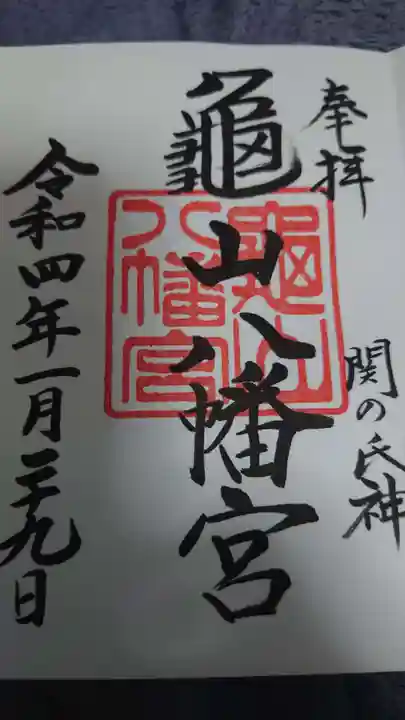 奉拝
関の氏神
龜山八幡宮
龜山
八幡宮
令和四年一月二十九日